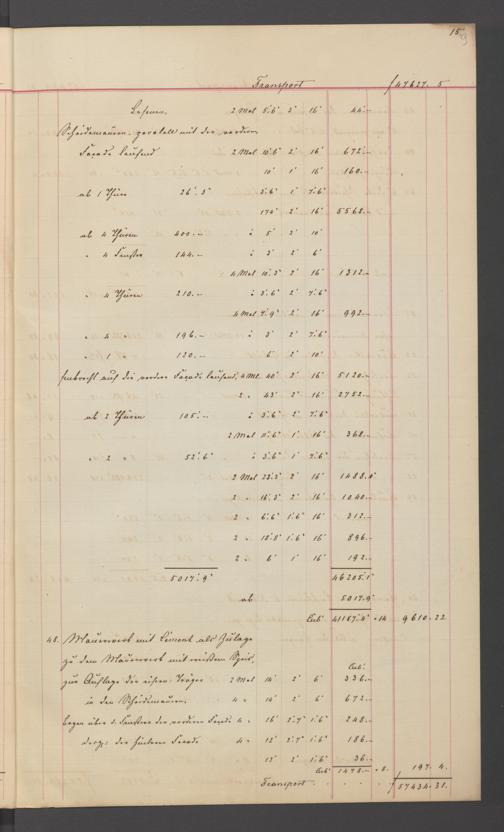 15
Transport f 47627. 5
Lesenen. 2 Mal 5.'6" 2' 16' 44.--
Scheidemauern: parallel mit der vordern
Façade laufend 2 Mal 10.'6" 2' 16' 672.--
10' 1' 16' 160.--
ab 1 Thüre 26'. 3" 3.'6" 1' 7.'6"
174' 2' 16' 5568.--
ab 4 Thüren 400.-- à 5' 2' 10'
" 4 Fenster 144.-- à 3' 2' 6'
4 Mal 10.'3" 2' 16' 1312.--
" 4 Thüren 210.-- à 3.'6" 2' 7.'6"
4 Mal 7.'9" 2' 16' 992.--
" 4 " 196.-- à 3' 2' 7.'6"
" 1 " 120.-- 6' 2' 10'
senkrecht auf die vordere Façade laufend, 4 Ml. 40' 2' 16' 5120.--
2 " 43' 2' 16' 2752.--
ab 2 Thüren 105.-- à 3.'6" 2' 7.'6"
2 Mal 11.'6" 1' 16' 368.--
" 2 " 52.'6" à 3.'6" 1' 7.'6"
2 Mal 23.'3" 2' 16' 1488.
2 " 16.'3" 2' 16' 1040.--
2 " 6.'6" 1.'6" 16' 312.--
2 " 18.'8" 1.'6" 16' 896.--
2 " 6' 1' 16' 192.--
5017.'9" 46205.'1"
ab 5017.'9"
Cub' 41187.'4" " 14 9610.22
48. Mauerwerk mit Ciment als Zulage
zu dem Mauerwerk mit weißem Speis,
Cub.'
zur Auflage der eisern. Träger 2 Mal 14' 2' 6' 336.--
in den Scheidemauern. 4 " 14' 2' 6' 672.--
Bogen über d. Fenstern der vorderen Façade 4 " 16' 2.'7" 1.'6" 248.--
desgl: der hintern Façade 4 " 12' 2.'7" 1.'6" 186.--
12' 2' 1.'6" 36.--
Cub' 1478.-- " 8. 197. 4.
Transport f 57434.31.